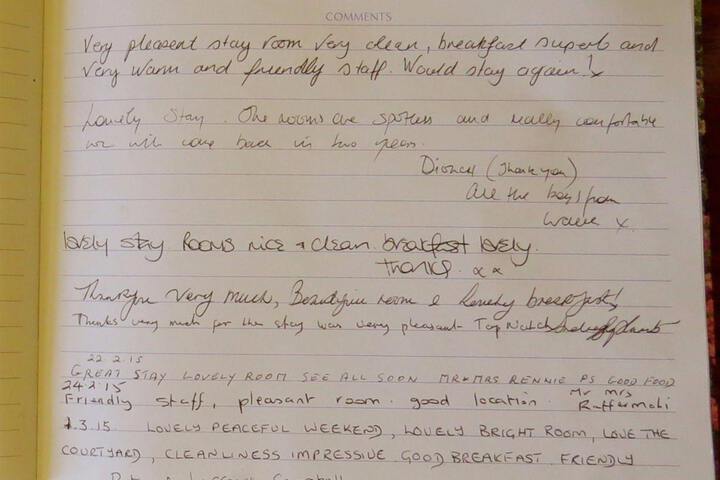 COMMENTS
Very pleasent stay room very clean, breakfast superb and
very warm and friendly staff. Would stay again! x
Lovely Stay. The rooms are spotless and really comfortable
we will come back in two years.
(Thank you)
all the boys from
x.
lovely stay Rooms nice + clean. breakfast lovely.
Thanks. x x
Thankyou very much, Beautiful room & lovely breakfast!
Thanks very much for the stay was very pleasant - Top Notch
22 2.15
GREAT STAY LOVELY ROOM SEE ALL SOON MR + MRS RENNIE PS GOOD FOOD
24.2.15
Friendly staff, pleasant room. good location. Mr Mrs
1.3.15 LOVELY PEACEFUL WEEKEND, LOVELY BRIGHT ROOM, LOVE THE
COURTYARD, CLEANLINESS IMPRESSIVE GOOD BREAKFAST. FRIENDLY